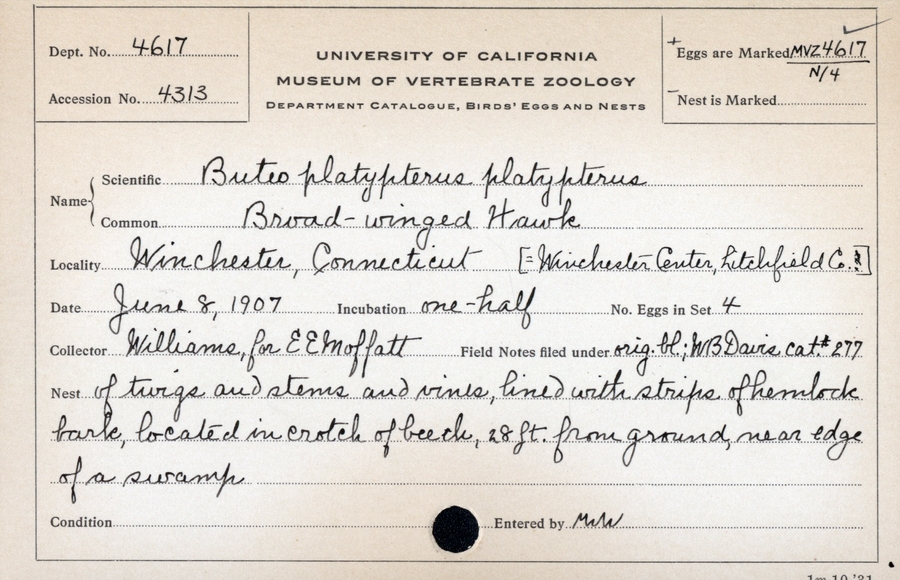 Dept. No. 4617
Accession No. 4313
UNIVERSITY OF CALIFORNIA
MUSEUM OF VERTEBRATE ZOOLOGY
DEPARTMENT CATALOGUE, BIRDS' EGGS AND NESTS
+ Eggs are Marked MVZ4617
N/4
– Nest is Marked
Name { Scientific Buteo platypterus platypterus
Common Broad-winged Hawk
Locality Winchester, Connecticut [= Winchester Center, Litchfield Co.]
Date June 8, 1907 Incubation one-half No. Eggs in Set 4
Collector Williams, for E E Moffatt Field Notes filed under orig. bl.; WB Davis cat.# 277
Nest of twigs and stems and vines, lined with strips of hemlock
bark, located in crotch of beech, 28 ft. from ground, near edge
of a swamp
Condition Entered by
1m 10 '31